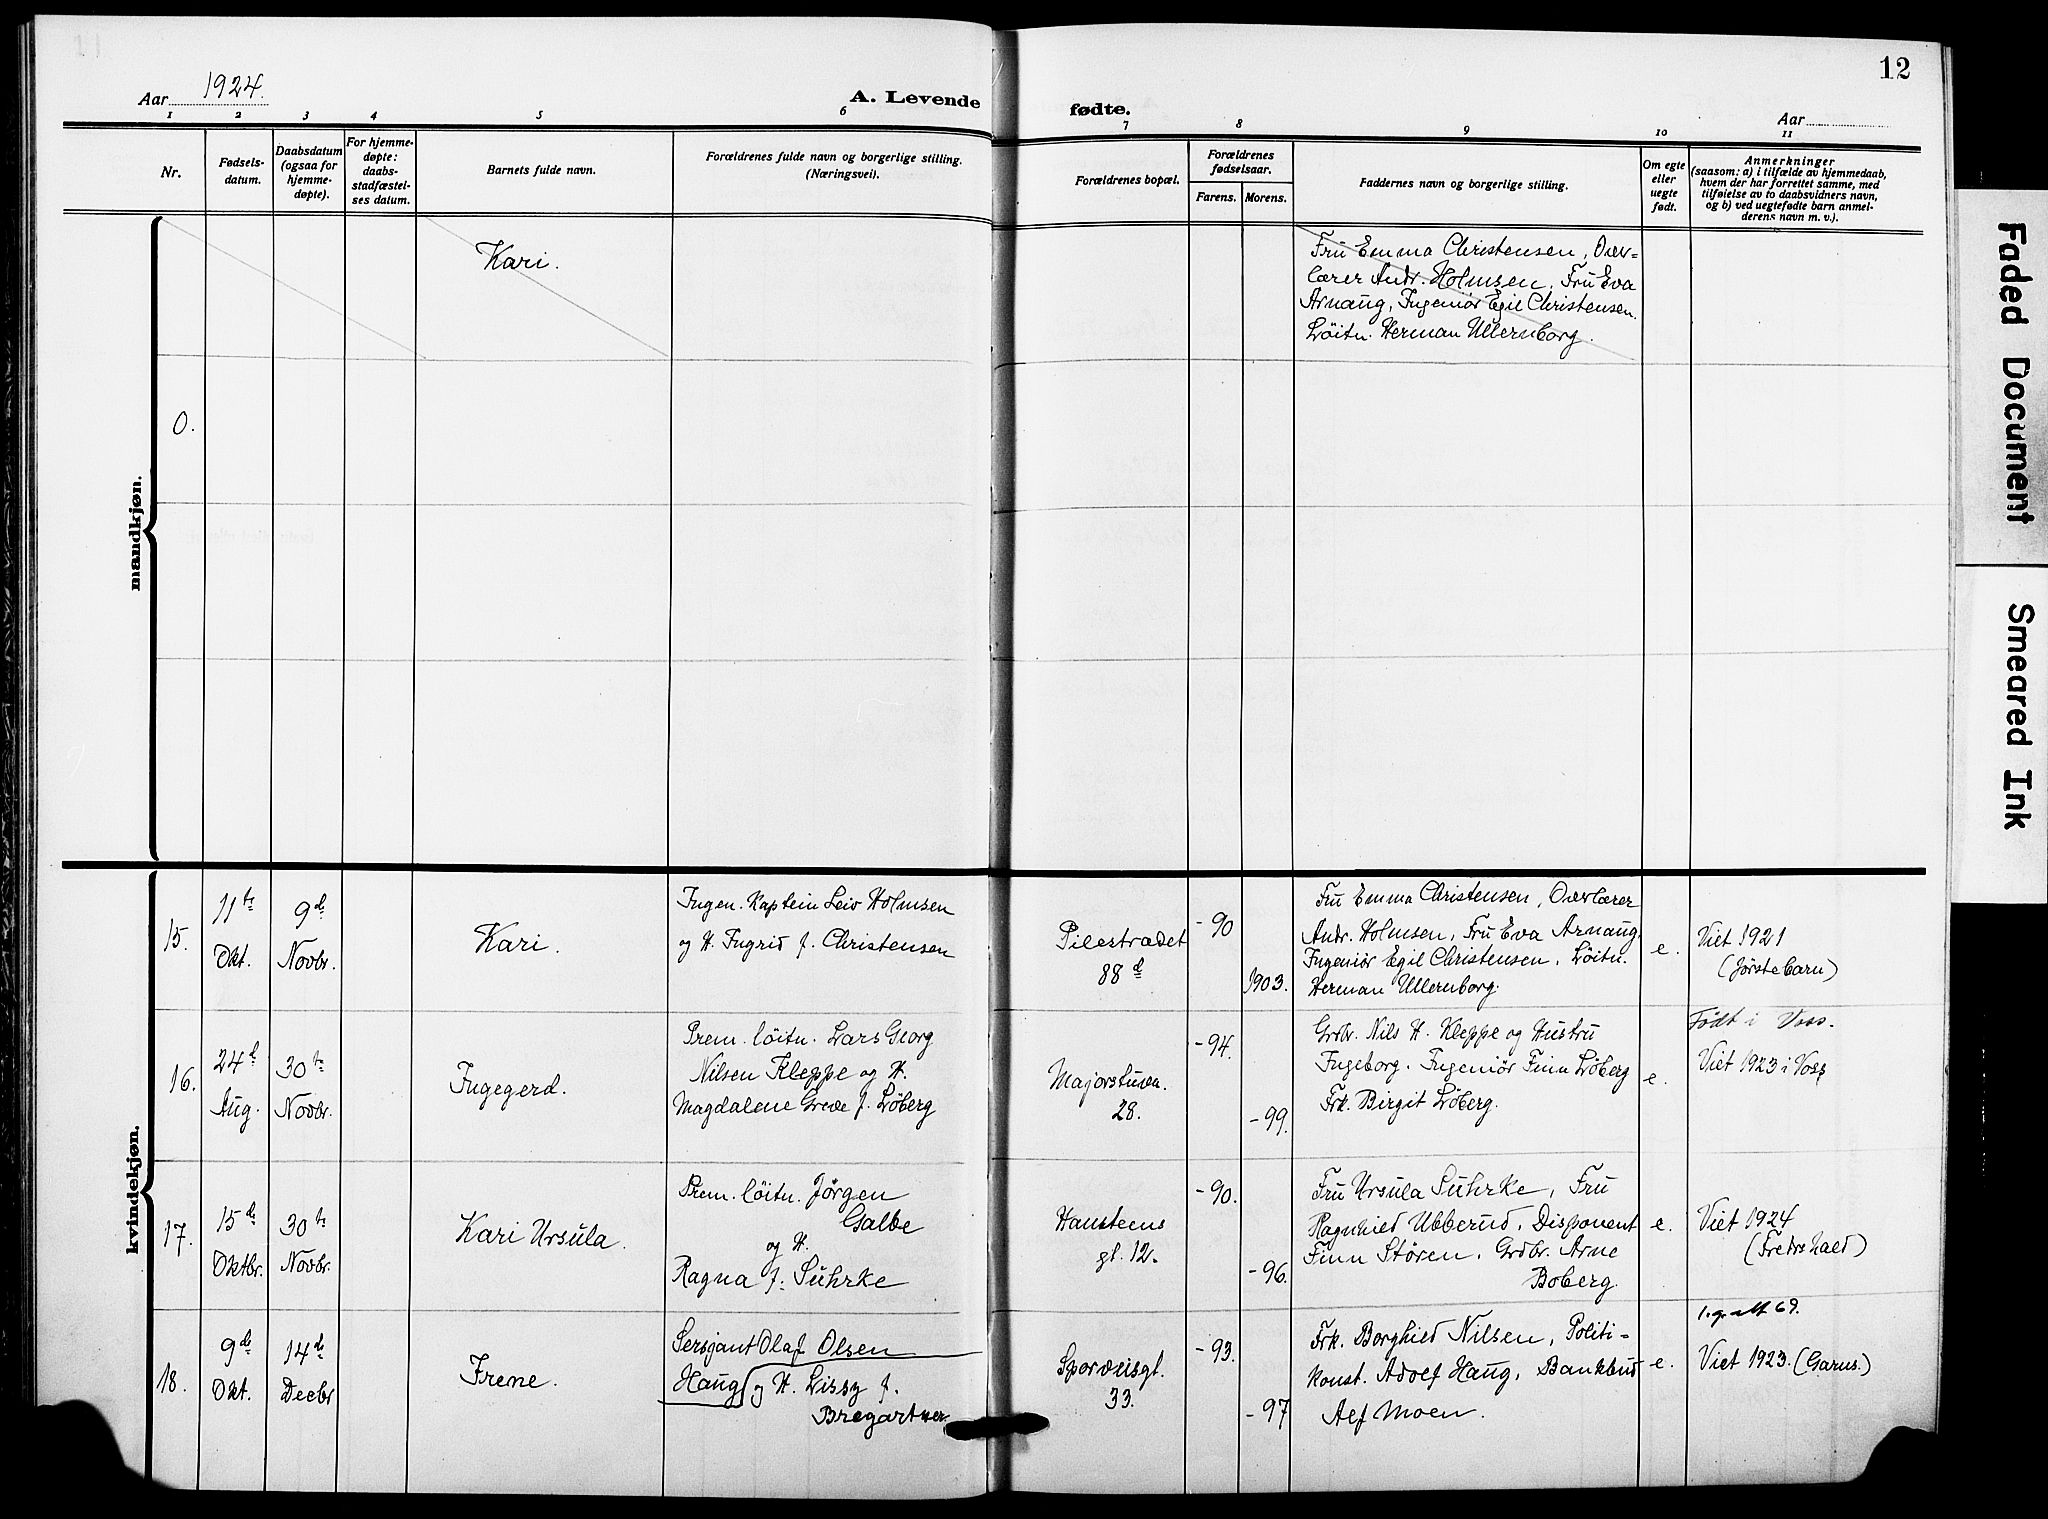 12
Aar 1924.
A. Levende fødte.
Aar
1 2 3 4 5 6 7 8 9 10 11
Nr.
Fødsels-
datum.
Daabsdatum
(ogsaa for
hjemme-
døpte).
For hjemme-
døpte:
daabs-
stadfæstel-
ses datum.
Barnets fulde navn.
Forældrenes fulde navn og borgerlige stilling.
(Næringsvei).
Forældrenes bopæl.
Forældrenes
fødselsaar.
Farens. Morens.
Faddernes navn og borgerlige stilling.
Om egte
eller
uegte
født.
Anmerkninger
(saasom: a) i tilfælde av hjemmedaab,
hvem der har forrettet samme, med
tilføielse av to daabsvidners navn,
og b) ved uegtefødte barn anmel-
derens navn m. v.).
mandkjøn.
Kari.
Fru Emma Christensen, Over-
lærer Andr. Holmsen, Fru Eva
Arnaug, Ingeniør Egil Christensen.
Løitn. Herman Ullernborg.
0.
kvindekjøn.
15.
11te
Okt.
9de
Novbr.
Kari.
Ingen. Kaptein Leiv Holmsen
og H. Ingrid f. Christensen
Pilestrædet
88d
-90
1903.
Fru Emma Christensen, Overlærer
Andr. Holmsen, Fru Eva Arnaug.
Ingeniør Egil Christensen, Løitn.
Herman Ullernborg.
e.
Viet 1921
(førstebarn)
16.
24de
Aug.
30te
Novbr.
Ingegerd.
Prem. løitn. Lars Georg
Nilsen Kleppe og H.
Magdalene Greve f. Løberg
Majorstuvn.
28.
-94.
-99.
Grdbr. Nils H. Kleppe og Hustru
Ingeborg. Ingeniør Finn Løberg
Frk. Birgit Løberg.
e.
Født i Voss.
Viet 1923 i Voss
17.
15de
Oktbr.
30te
Novbr.
Kari Ursula.
Prem. løitn. Jörgen
Galbe
og H.
Ragna f. Suhrke
Hansteens
gt. 12.
-90.
-96.
Fru Ursula Suhrke, Fru
Ragnhild Ubberud, Disponent
Finn Støren, Grdbr. Arne
Boberg.
e.
Viet 1924
(Fredrshald)
18.
9de
Okt.
14de
Decbr
Irene.
Sersjant Olaf Olsen
Haug og H. Lissy f.
Bregartner
Sporveisgt.
33.
-93.
-97
Frk. Borghild Nilsen, Politi-
konst. Adolf Haug, Bankbud
Alf Moen.
e.
Viet 1923. (Garns.)
Faded Document
Smeared Ink